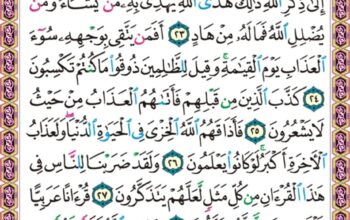 إِلَىٰ ذِكْرِ ٱللَّهِ ذَٰلِكَ هُدَى ٱللَّهِ يَهْدِى بِهِۦ مَن يَشَآءُ وَمَن
يُضْلِلِ ٱللَّهُ فَمَا لَهُۥ مِنْ هَادٍ ٢٣ أَفَمَن يَتَّقِى بِوَجْهِهِۦ سُوٓءَ
ٱلْعَذَابِ يَوْمَ ٱلْقِيَٰمَةِ وَقِيلَ لِلظَّٰلِمِينَ ذُوقُوا۟ مَا كُنتُمْ تَكْسِبُونَ
٢٤ كَذَّبَ ٱلَّذِينَ مِن قَبْلِهِمْ فَأَتَىٰهُمُ ٱلْعَذَابُ مِنْ حَيْثُ
لَا يَشْعُرُونَ ٢٥ فَأَذَاقَهُمُ ٱللَّهُ ٱلْخِزْىَ فِى ٱلْحَيَوٰةِ ٱلدُّنْيَا وَلَعَذَابُ
ٱلْءَاخِرَةِ أَكْبَرُ لَوْ كَانُوا۟ يَعْلَمُونَ ٢٦ وَلَقَدْ ضَرَبْنَا لِلنَّاسِ فِى
هَٰذَا ٱلْقُرْءَانِ مِن كُلِّ مَثَلٍ لَّعَلَّهُمْ يَتَذَكَّرُونَ ٢٧ قُرْءَانًا عَرَبِيًّا